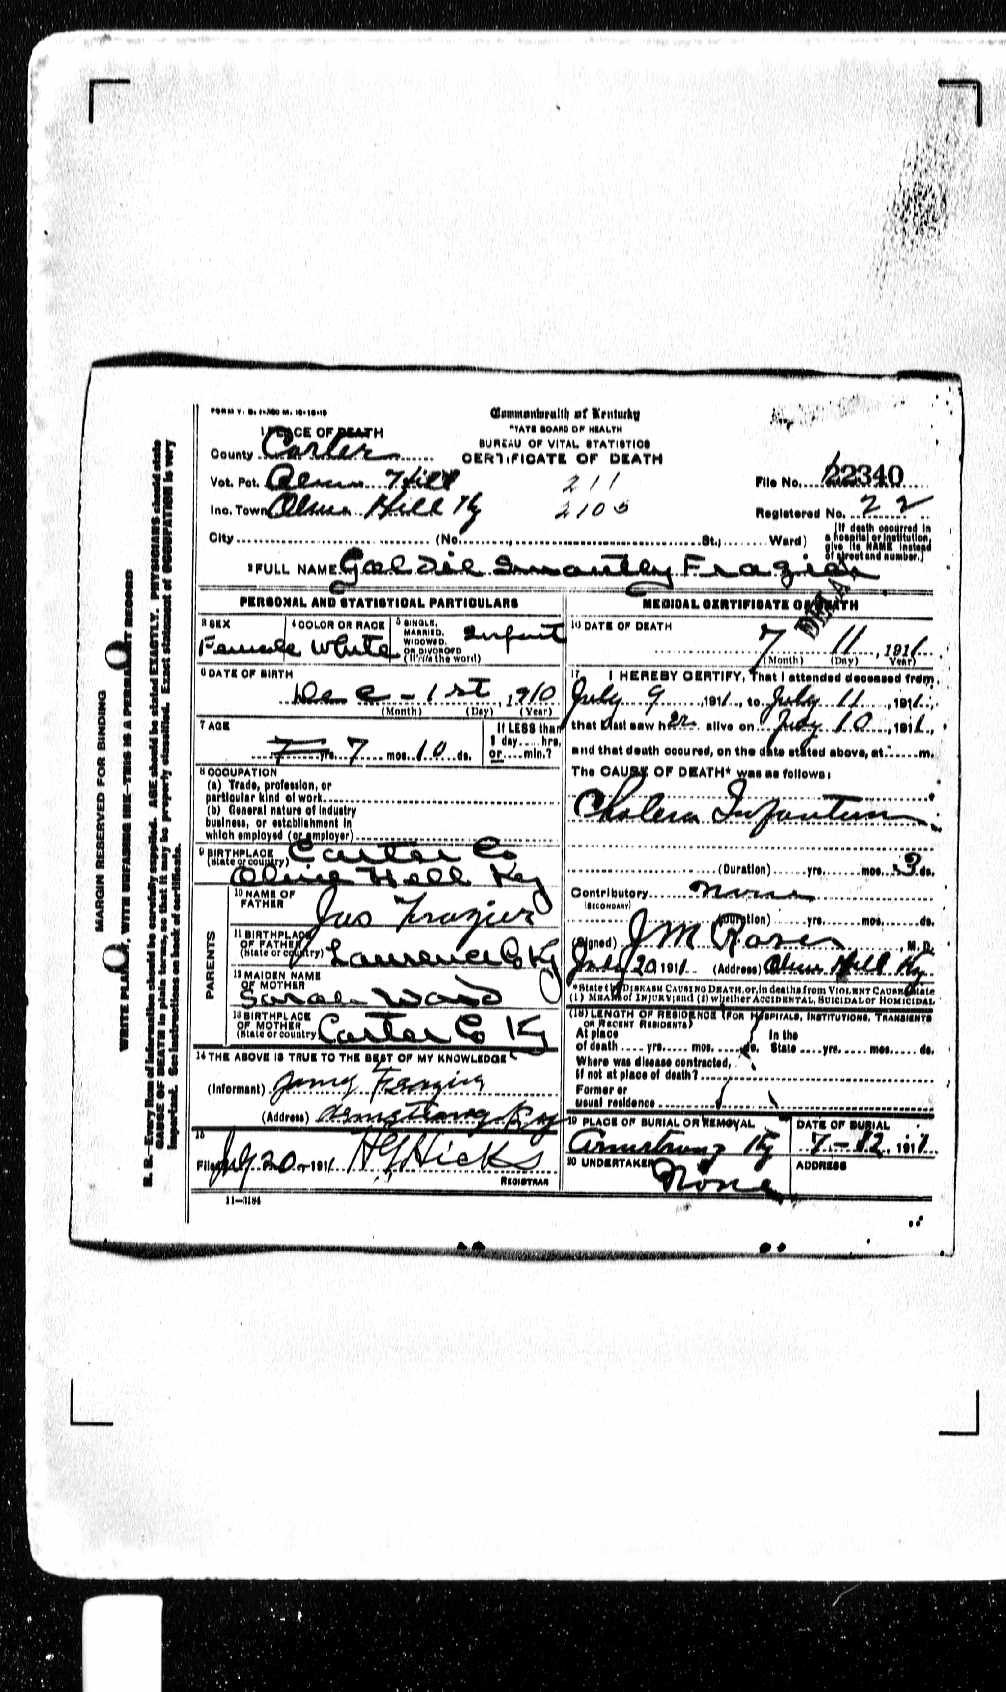 Commonwealth of Kentucky
STATE BOARD OF HEALTH
BUREAU OF VITAL STATISTICS
CERTIFICATE OF DEATH
1 PLACE OF DEATH
County Carter
Vot. Pct. Hill 211
Inc. Town Hill Ky 2105
City (No. St.; Ward)
File No. 22340
Registered No. 22
[If death occurred in
a hospital or institution,
give its NAME instead
of street and number.]
2 FULL NAME Frazier
PERSONAL AND STATISTICAL PARTICULARS
3 SEX
Female
4 COLOR OR RACE
White
5 SINGLE,
MARRIED,
WIDOWED,
OR DIVORCED
(Write the word)
Infant
6 DATE OF BIRTH
Dec - 1st, 1910
(Month) (Day) (Year)
7 AGE
yrs. 7 mos. 10 ds.
If LESS than
1 day hrs.
or min.?
8 OCCUPATION
(a) Trade, profession, or
particular kind of work
(b) General nature of industry
business, or establishment in
which employed (or employer)
9 BIRTHPLACE
(State or country)
Carter Co
Olive Hill Ky
PARENTS
10 NAME OF
FATHER
Jas Frazier
11 BIRTHPLACE
OF FATHER
(State or country)
Laurence Co Ky
12 MAIDEN NAME
OF MOTHER
Sarah Ward
13 BIRTHPLACE
OF MOTHER
(State or country)
Carter Co Ky
14 THE ABOVE IS TRUE TO THE BEST OF MY KNOWLEDGE
(Informant) Frazier
(Address) Armstrong Ky
15
Filed July 20 1911 H G Hicks
REGISTRAR
11-3184
MEDICAL CERTIFICATE OF DEATH
16 DATE OF DEATH
7 11, 1911
(Month) (Day) Year)
17 I HEREBY CERTIFY, That I attended deceased from
July 9, 1911, to July 11, 1911,
that I last saw her alive on July 10, 1911,
and that death occured, on the date stated above, at m.
The CAUSE OF DEATH* was as follows:
Cholera Infantum
(Duration) yrs. mos. 3 ds.
Contributory none
(SECONDARY)
(Duration) yrs. mos. ds.
(Signed) J M , M. D.
July 20 1911 (Address) Olive Hill Ky
*State the DISEASE CAUSING DEATH, or, in deaths from VIOLENT CAUSES, state
(1) MEANS OF INJURY; and (2) whether ACCIDENTAL, SUICIDAL or HOMICIDAL
(18) LENGTH OF RESIDENCE (FOR HOSPITALS, INSTITUTIONS, TRANSIENTS
OR RECENT RESIDENTS)
At place In the
of death yrs. mos. ds. State yrs. mos. ds.
Where was disease contracted,
if not at place of death?
Former or
usual residence
19 PLACE OF BURIAL OR REMOVAL
Armstrong Ky
DATE OF BURIAL
7-12, 1911
20 UNDERTAKER
None
ADDRESS
MARGIN RESERVED FOR BINDING
WRITE PLAINLY, WITH UNFADING INK—THIS IS A PERMANENT RECORD
N. B.—Every item of information should be carefully supplied. AGE should be stated EXACTLY. PHYSICIANS should state
CAUSE OF DEATH in plain terms, so that it may be properly classified. Exact statement of OCCUPATION is very
important. See instructions on back of certificate.